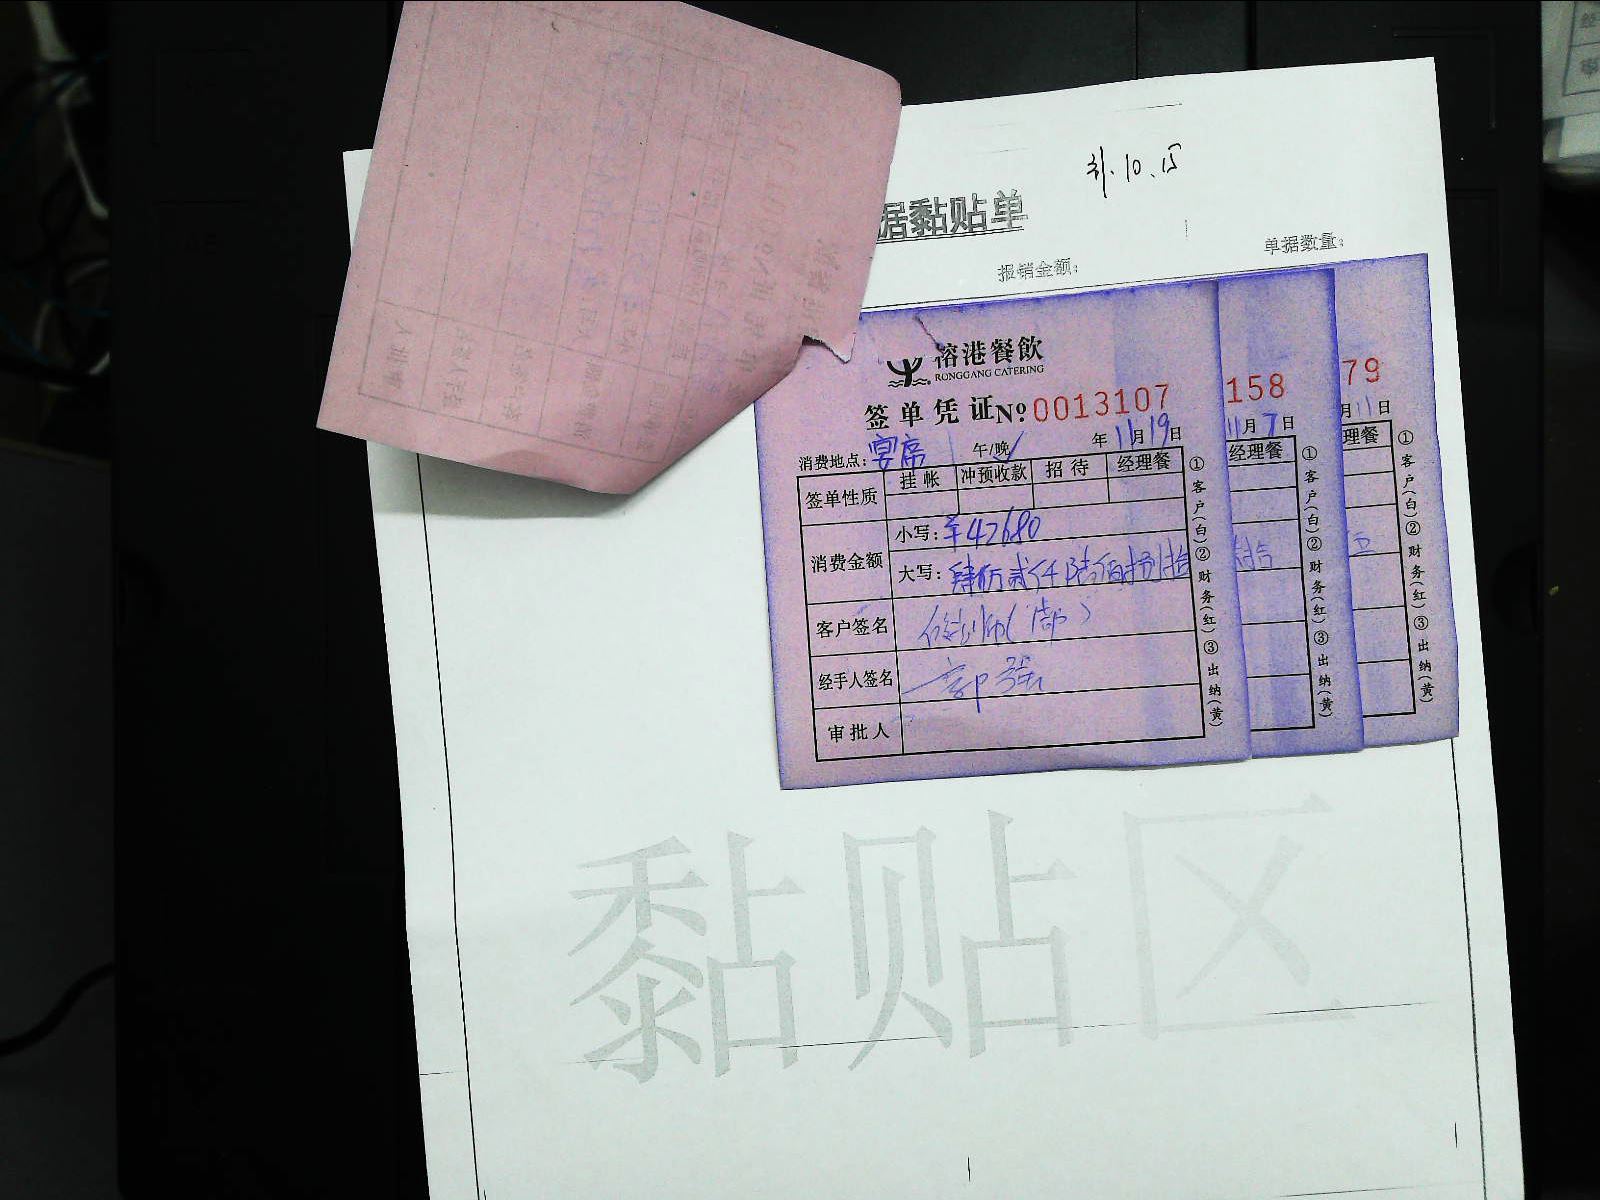 31.10.15
据黏贴单
单据数量：
报销金额：
榕港餐飲
RONGGANG CATERING
签单凭证№0013107
158
79
消费地点：宴席 午/晚✓ 年11月19日
11月7日
月11日
签单性质 挂帐 冲预收款 招待 经理餐
经理餐
理餐
消费金额
小写：¥42680
大写：肆万贰仟陆佰捌拾
捌拾
伍
客户签名
经手人签名 郭强
审批人
①客户(白)②财务(红)③出纳(黄)
①客户(白)②财务(红)③出纳(黄)
①客户(白)②财务(红)③出纳(黄)
黏贴区